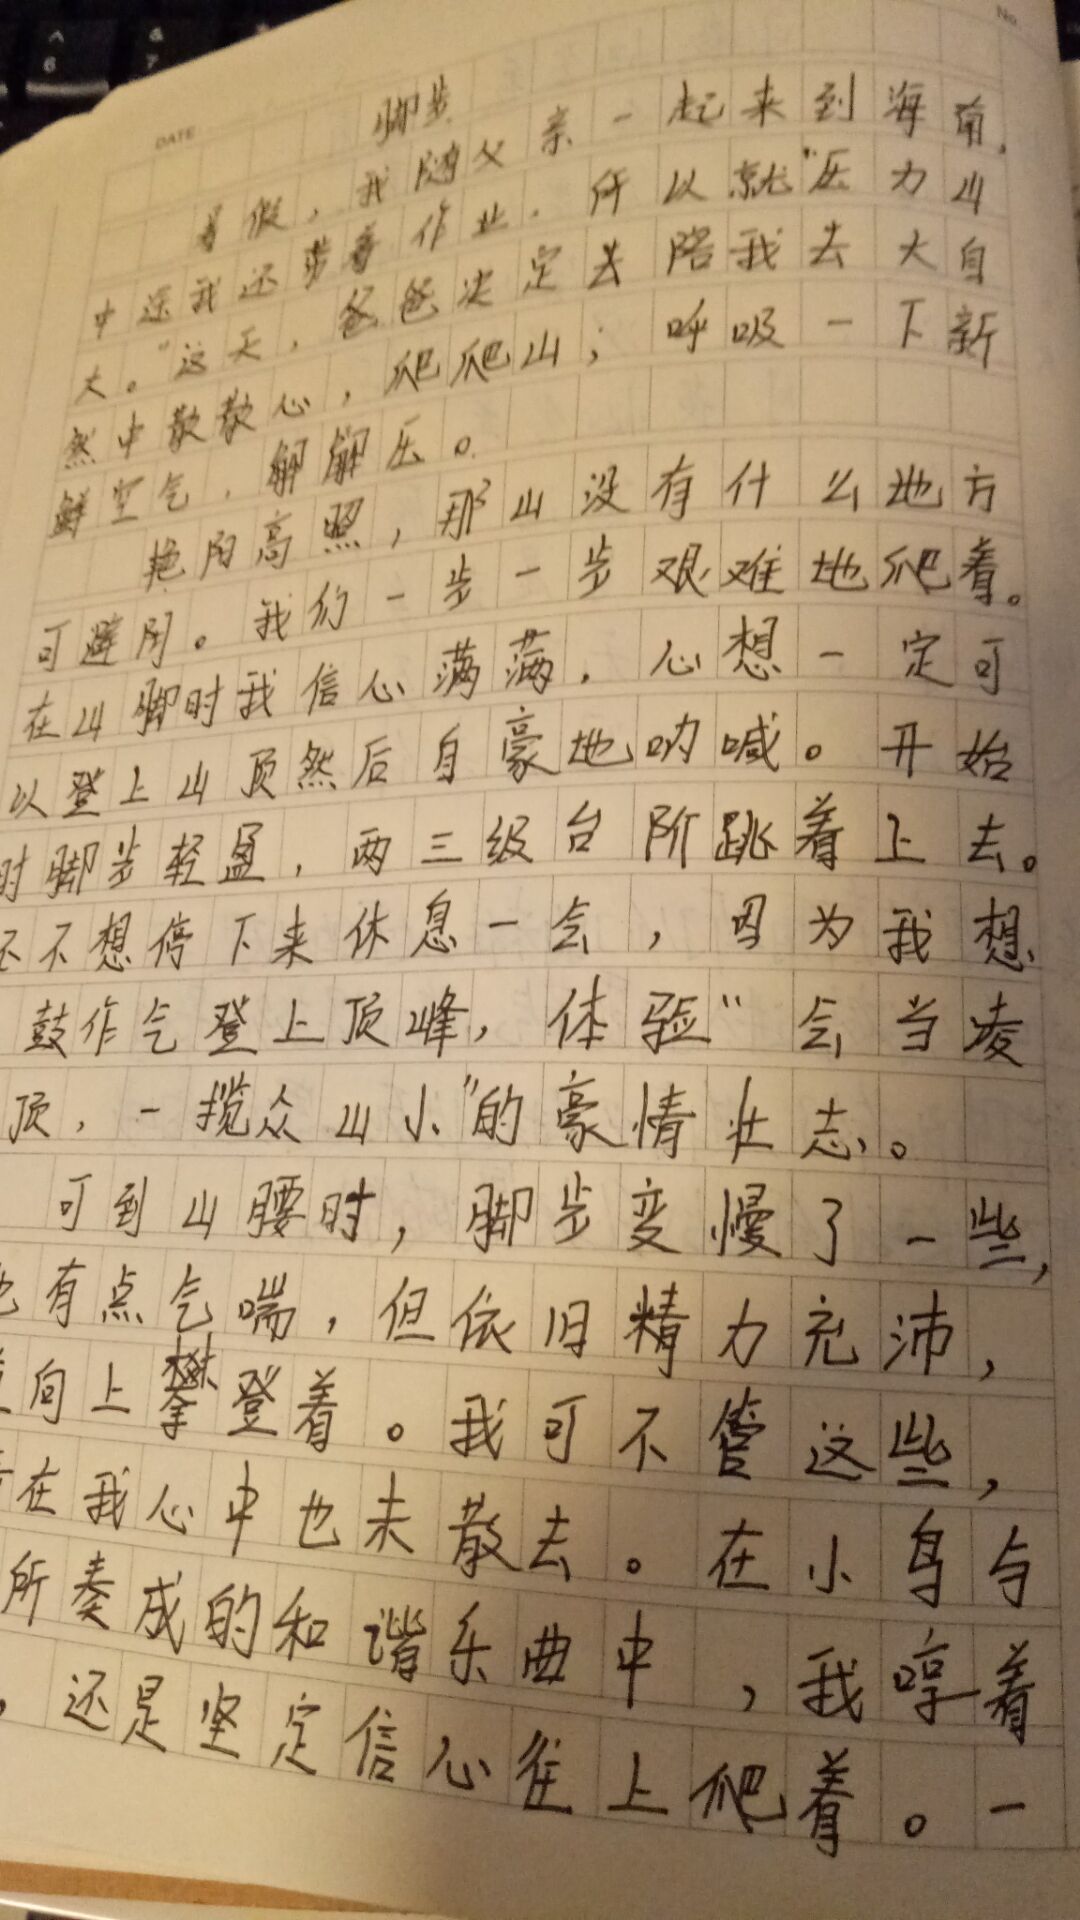 No.
DATE
脚步
暑假，我随父亲一起来到海南，
中途我还带着作业．所以就"压力山
大。"这天，爸爸决定去陪我去大自
然中散散心，爬爬山；呼吸一下新
鲜空气，解解压。
艳阳高照，那山没有什么地方
可避阴。我们一步一步艰难地爬着。
在山脚时我信心满满．心想一定可
以登上山顶然后自豪地呐喊。开始
时脚步轻盈，两三级台阶跳着上去。
还不想停下来休息一会，因为我想
鼓作气登上顶峰，体验"会当凌
顶，一揽众山小"的豪情壮志。
可到山腰时，脚步变慢了一些，
也有点气喘，但依旧精力充沛，
向上攀登着。我可不管这些，
在我心中也未散去。在小鸟与
所奏成的和谐乐曲中，我哼着
，还是坚定信心往上爬着。一